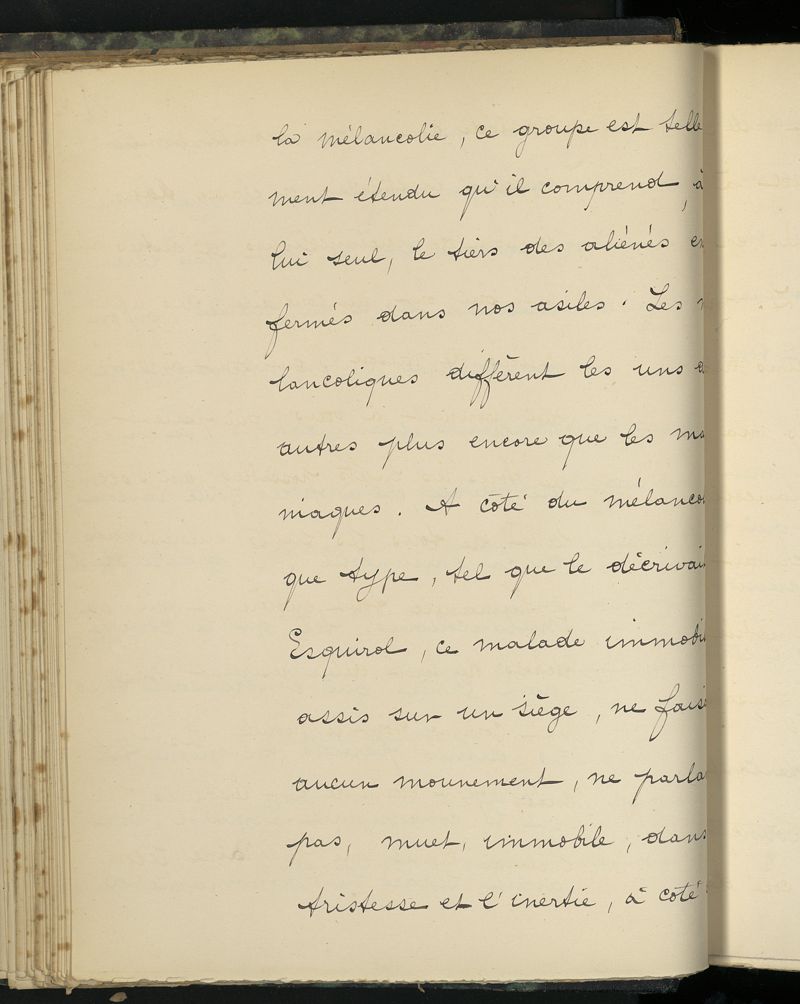 la mélancolie, ce groupe est telle
ment étendu qu'il comprend, à
lui seul, le tiers des aliénés en
fermés dans nos asiles. Les
lancoliques diffèrent les uns
autres plus encore que les ma
niaques. A côté du mélanco
que type, tel que le décrivai
Esquirol, ce malade immobi
assis sur un siège, ne fais
aucun mouvement, ne parla
pas, muet, immobile, dans
tristesse et l'inertie, à côté